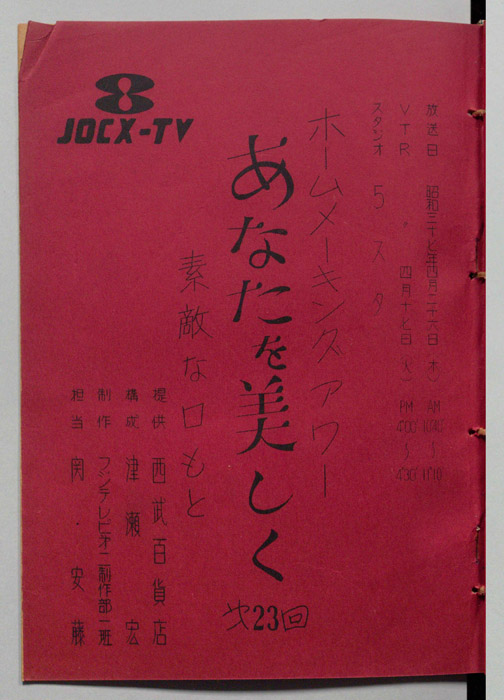 8
JOCX-TV
放送日 昭和三十七年四月二十六日(木) AM
VTR 〃 四月十七日(火) PM 4:00~4:30
スタジオ 5スタ
ホームメーキングアワー
あなたを美しく
㐧23回
素敵な口もと
提供 西武百貨店
構成 津瀬 宏
制作 フジテレビ㐧二制作部一班
担当 関 安藤